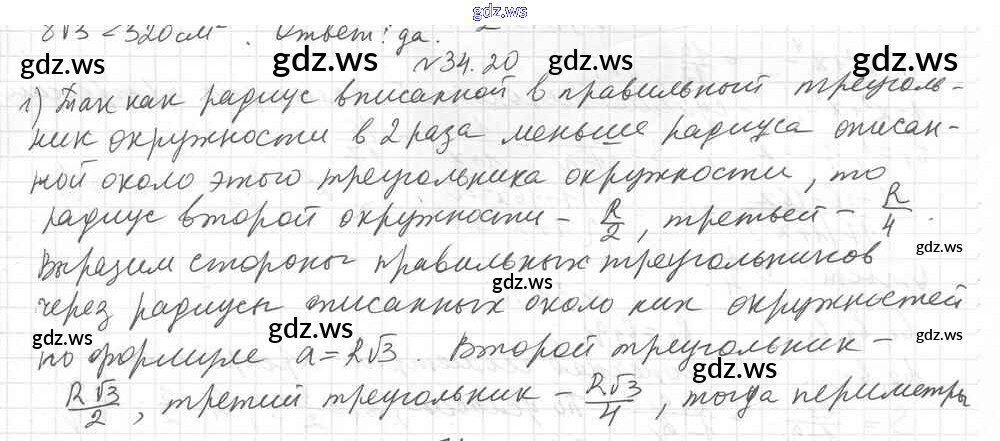 gdz.ws
8√3 < 320 см². Ответ: да.
gdz.ws gdz.ws gdz.ws gdz.ws
№34.20
1) Так как радиус вписанной в правильный треуголь-
ник окружности в 2 раза меньше радиуса описан-
ной около этого треугольника окружности, то
радиус второй окружности - R/2, третьей - R/4.
gdz.ws
Выразим стороны правильных треугольников
gdz.ws
через радиусы описанных около них окружностей
gdz.ws gdz.ws gdz.ws
по формуле a = R√3. Второй треугольник -
gdz.ws
R√3/2, третий треугольник - R√3/4, тогда периметры
gdz.ws gdz.ws